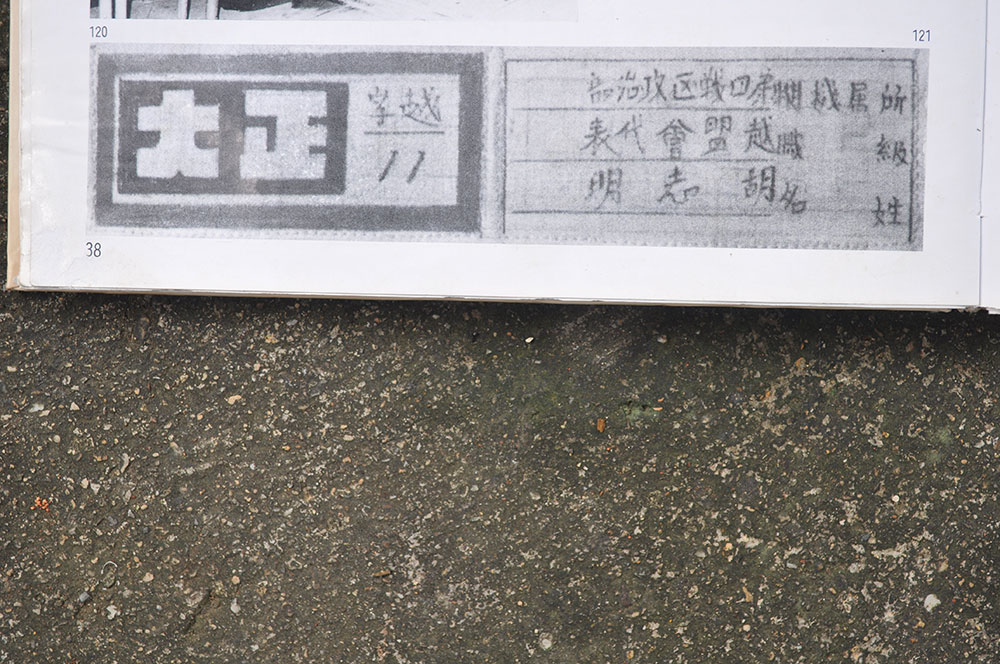 120
121
正大
越字
11
所属機關第四戰区政治部
級職越盟會代表
姓名胡志明
38